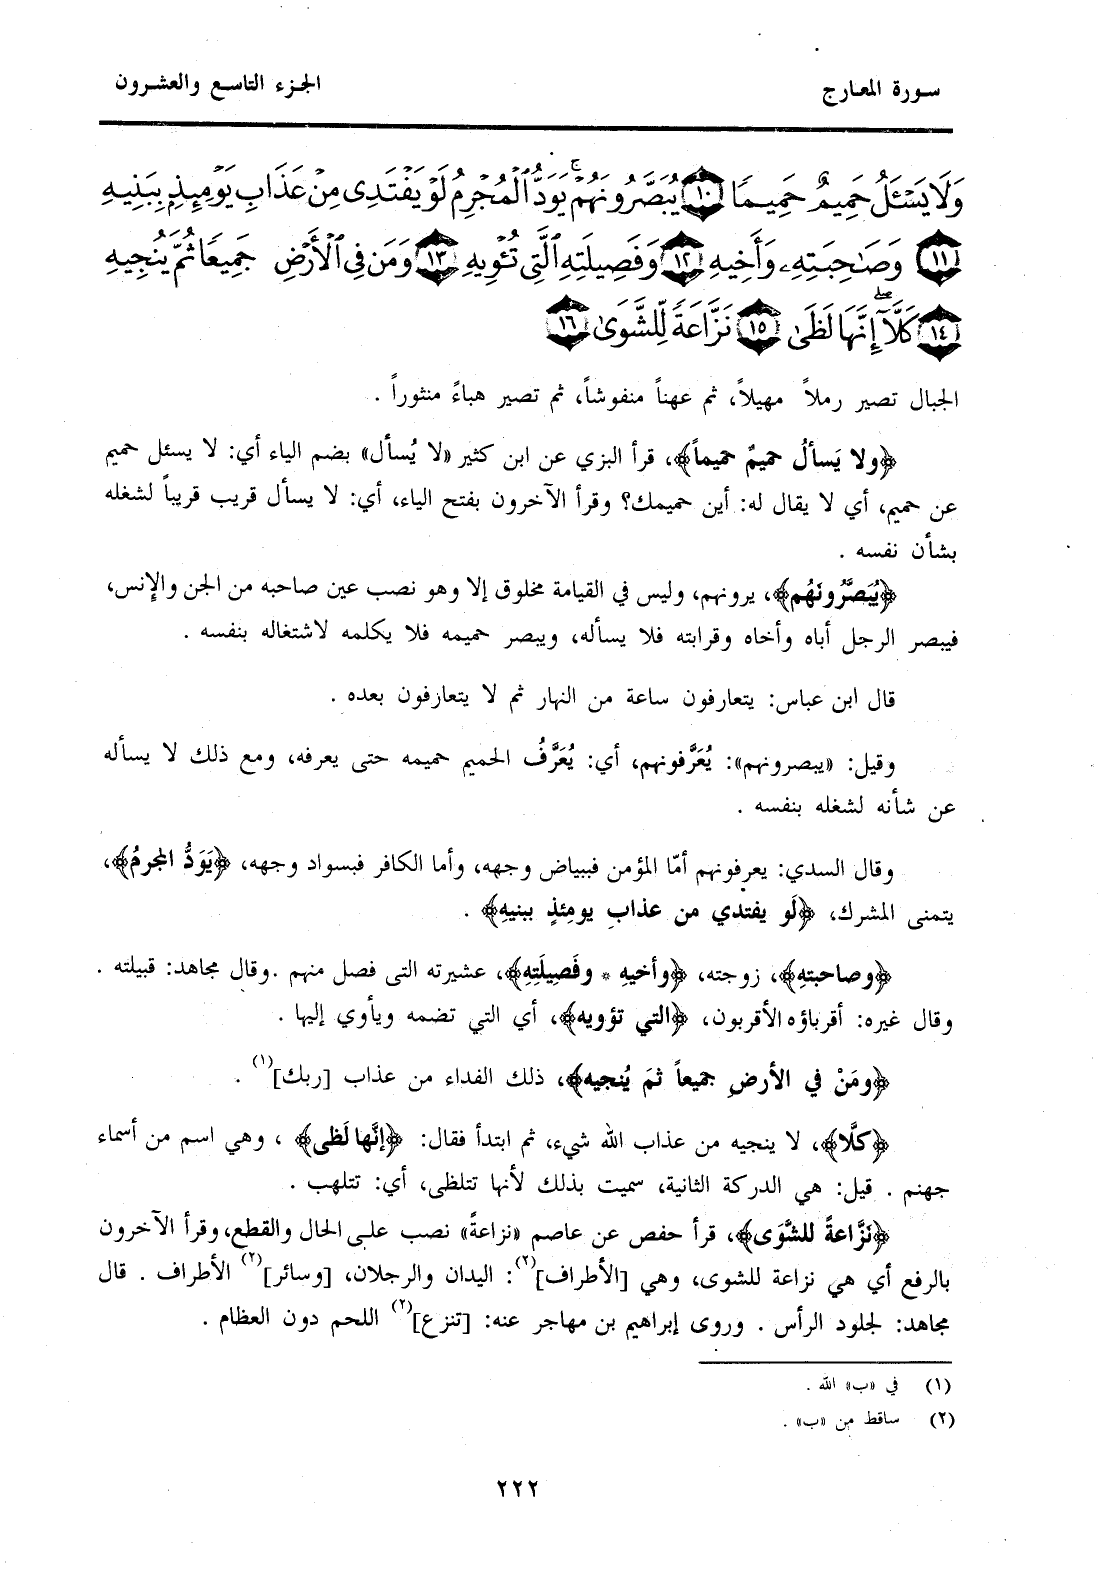 سورة المعارج الجزء التاسع والعشرون
وَلَا يَسْـَٔلُ حَمِيمٌ حَمِيمًا ١٠ يُبَصَّرُونَهُمْ ۚ يَوَدُّ ٱلْمُجْرِمُ لَوْ يَفْتَدِى مِنْ عَذَابِ يَوْمِئِذٍۭ بِبَنِيهِ
١١ وَصَـٰحِبَتِهِۦ وَأَخِيهِ ١٢ وَفَصِيلَتِهِ ٱلَّتِى تُـْٔوِيهِ ١٣ وَمَن فِى ٱلْأَرْضِ جَمِيعًا ثُمَّ يُنجِيهِ
١٤ كَلَّآ ۖ إِنَّهَا لَظَىٰ ١٥ نَزَّاعَةً لِّلشَّوَىٰ ١٦
الجبال تصير رملاً مهيلاً، ثم عهناً منفوشاً، ثم تصير هباءً منثوراً .
﴿ولا يَسألُ حميمٌ حميماً﴾، قرأ البزي عن ابن كثير «لا يُسأل» بضم الياء أي: لا يسئل حميم
عن حميم، أي لا يقال له: أين حميمك؟ وقرأ الآخرون بفتح الياء، أي: لا يسأل قريب قريباً لشغله
بشأن نفسه .
﴿يُبَصَّرُونَهُم﴾، يرونهم، وليس في القيامة مخلوق إلا وهو نصب عين صاحبه من الجن والإنس،
فيبصر الرجل أباه وأخاه وقرابته فلا يسأله، ويبصر حميمه فلا يكلمه لاشتغاله بنفسه .
قال ابن عباس: يتعارفون ساعة من النهار ثم لا يتعارفون بعده .
وقيل: «يبصرونهم»: يُعَرَّفونهم، أي: يُعَرَّفُ الحميم حميمه حتى يعرفه، ومع ذلك لا يسأله
عن شأنه لشغله بنفسه .
وقال السدي: يعرفونهم أمّا المؤمن فببياض وجهه، وأما الكافر فبسواد وجهه، ﴿يَوَدُّ المجرمُ﴾،
يتمنى المشرك، ﴿لَو يفتدي من عذابِ يومئذٍ ببنيه﴾ .
﴿وصاحبتهِ﴾، زوجته، ﴿وأخيهِ * وفَصِيلَتِهِ﴾، عشيرته التى فصل منهم .وقال مجاهد: قبيلته .
وقال غيره: أقرباؤه الأقربون، ﴿التي تؤويه﴾، أي التي تضمه ويأوي إليها .
﴿ومَنْ في الأرضِ جميعاً ثمَ يُنجيه﴾، ذلك الفداء من عذاب [ربك](١) .
﴿كلَّا﴾، لا ينجيه من عذاب الله شيء، ثم ابتدأ فقال: ﴿إنَّها لَظى﴾ ، وهي اسم من أسماء
جهنم . قيل: هي الدركة الثانية، سميت بذلك لأنها تتلظى، أي: تتلهب .
﴿نَزَّاعةً للشَّوَى﴾، قرأ حفص عن عاصم «نزاعةً» نصب على الحال والقطع، وقرأ الآخرون
بالرفع أي هي نزاعة للشوى، وهي [الأطراف](٢): اليدان والرجلان، [وسائر](٢) الأطراف . قال
مجاهد: لجلود الرأس . وروى إبراهيم بن مهاجر عنه: [تنزع](٢) اللحم دون العظام .
(١) في «ب» الله .
(٢) ساقط من «ب» .
٢٢٢